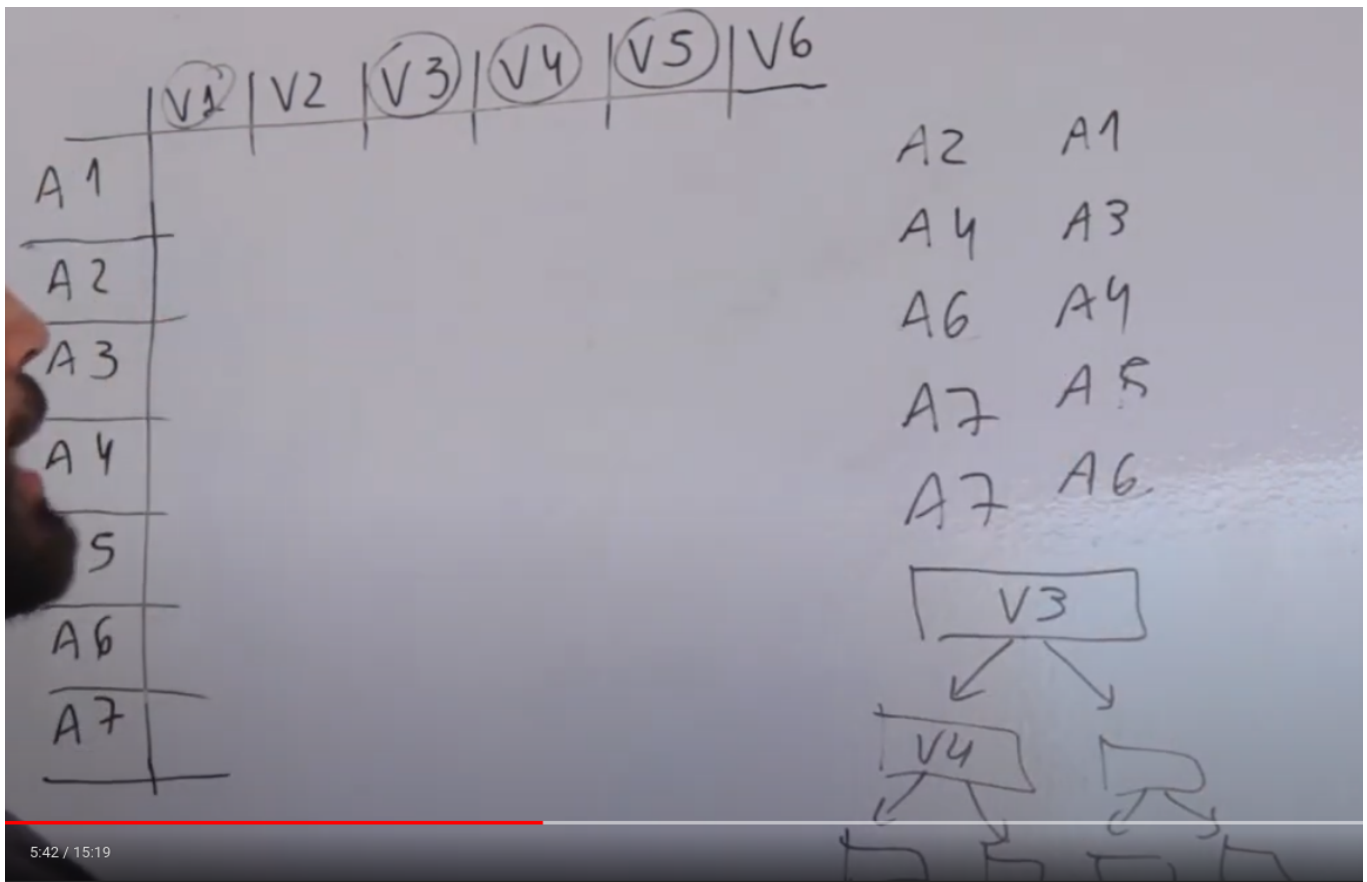 V1 V2 V3 V4 V5 V6
A1
A2
A3
A4
5
A6
A7
A2 A1
A4 A3
A6 A4
A7 A5
A7 A6
V3
V4
5:42 / 15:19